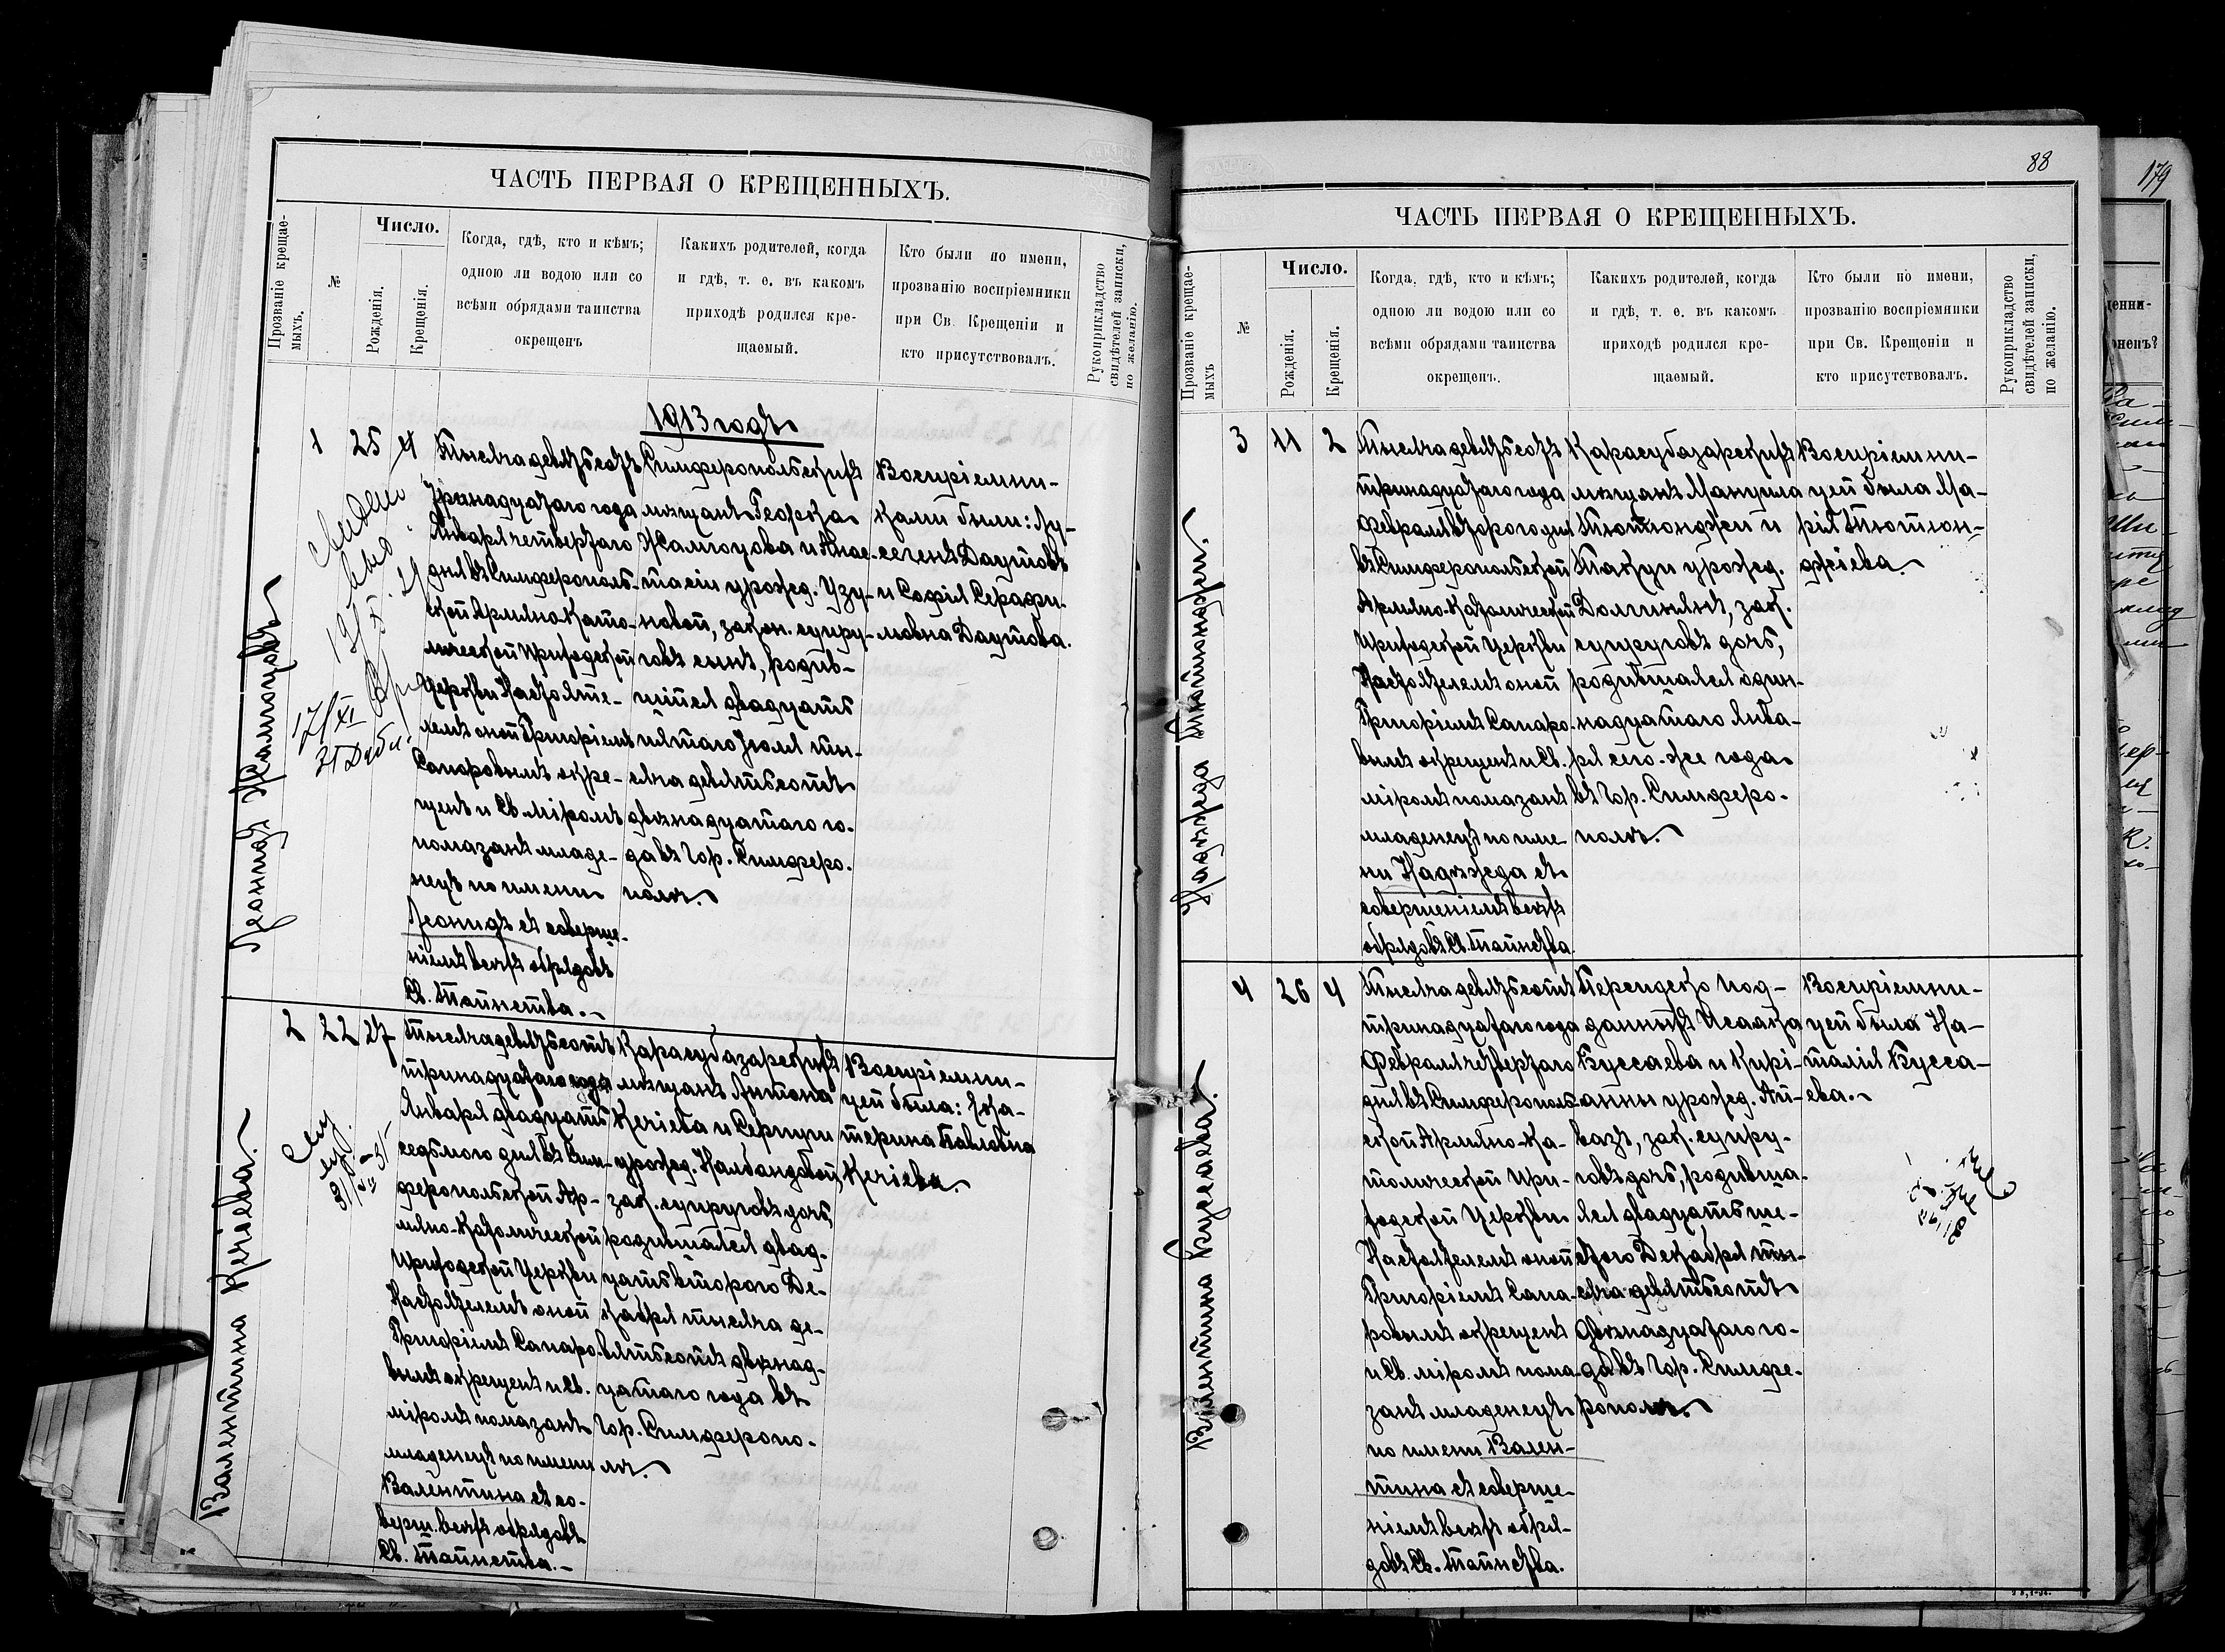 ЧАСТЬ ПЕРВАЯ О КРЕЩЕННЫХЪ.
Прозваніе крещае-
мыхъ.
№
Число.
Рожденія.
Крещенія.
Когда, гдѣ, кто и кѣмъ;
одною ли водою или со
всѣми обрядами таинства
окрещенъ
Какихъ родителей, когда
и гдѣ, т. е. въ какомъ
приходѣ родился кре-
щаемый.
Кто были по имени,
прозванію воспріемники
при Св. Крещеніи и
кто присутствовалъ.
Рукоприкладство
свидѣтелей записки,
по желанію.
1913 годъ
Леонидъ
1
25
4
Тысяча девятьсотъ
тринадцатаго года
Января четвертаго
дня въ Симферополь-
ской Армяно-Като-
лической Приходской
Церкви Настояте-
лемъ оной Григоріемъ
Сапаровымъ окре-
щенъ и Св. міромъ
помазанъ младе-
нецъ по имени
Леонидъ съ соверше-
ніемъ всѣхъ обрядовъ
Св. Таинства.
Симферопольскихъ
мѣщанъ Георка
и Анас-
тасіи урожд. Узу-
новой, закон. супру-
говъ сынъ, родив-
шійся двадцать
пятаго Іюля ты-
сяча девятьсотъ
двѣнадцатаго го-
да въ Гор. Симферо-
полѣ.
Воспріемни-
ками были: Лу-
сегенъ Даутовъ
и Софія Серафи-
мовна Даутова.
17/XI
Валентина Кечіева.
2
22
27
Тысяча девятьсотъ
тринадцатаго года
Января двадцать
седьмого дня въ Сим-
феропольской Ар-
мяно-Католической
Приходской Церкви
Настоятелемъ оной
Григоріемъ Сапаро-
вымъ окрещенъ и Св.
міромъ помазанъ
младенецъ по имени
Валентина съ со-
верш. всѣхъ обрядовъ
Св. Таинства.
Карасубазарскихъ
мѣщанъ Антона
Кечіева и Серпуги
урожд. Налбандовой,
зак. супруговъ дочь,
родившаяся двад-
цать второго Де-
кабря тысяча де-
вятьсотъ двѣнад-
цатаго года въ
Гор. Симферопо-
лѣ.
Воспріемни-
цей была: Ека-
терина Павловна
Кечіева.
88
179
ЧАСТЬ ПЕРВАЯ О КРЕЩЕННЫХЪ.
Прозваніе крещае-
мыхъ
№
Число.
Рожденія.
Крещенія.
Когда, гдѣ, кто и кѣмъ;
одною ли водою или со
всѣми обрядами таинства
окрещенъ.
Какихъ родителей, когда
и гдѣ, т. е. въ какомъ
приходѣ родился кре-
щаемый.
Кто были по имени,
прозванію воспріемники
при Св. Крещеніи и
кто присутствовалъ.
Рукоприкладство
свидѣтелей записки,
по желанію.
Надежда Тютюнджи.
3
11
2
Тысяча девятьсотъ
тринадцатаго года
Февраля второго дня
въ Симферопольской
Армяно-Католической
Приходской Церкви
Настоятелемъ оной
Григоріемъ Сапаро-
вымъ окрещенъ и Св.
міромъ помазанъ
младенецъ по име-
ни Надежда съ
совершеніемъ всѣхъ
обрядовъ Св. Таинства.
Карасубазарскихъ
мѣщанъ Манупла
Тютюнджи и
Такуи урожд.
Долгинянъ, зак.
супруговъ дочь,
родившаяся один-
надцатаго Янва-
ря сего-же года
въ Гор. Симферо-
полѣ.
Воспріемни-
цей была Ма-
рія Тютюн-
джіева.
Валентина Буссаева.
4
26
4
Тысяча девятьсотъ
тринадцатаго года
Февраля четвертаго
дня въ Симферополь-
ской Армяно-Ка-
толической При-
ходской Церкви
Настоятелемъ оной
Григоріемъ Сапа-
ровымъ окрещенъ
и Св. міромъ пома-
занъ младенецъ
по имени Вален-
тина съ соверше-
ніемъ всѣхъ обря-
довъ Св. Таинства.
Персидско под-
данныхъ Исаака
Буссаева и Кирі-
анны урожд. Ай-
вазъ, зак. супру-
говъ дочь, родивша-
яся двадцать ше-
стого Декабря ты-
сяча девятьсотъ
двѣнадцатаго го-
да въ Гор. Симфе-
рополѣ.
Воспріемни-
цей была На-
талія Бусса-
ева.